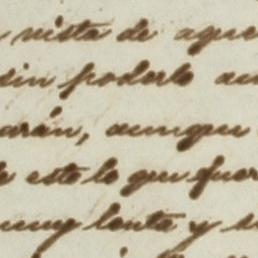 vista de aque
sin poderlo au
arán, aunque
e esto lo que fuer
muy lenta y s